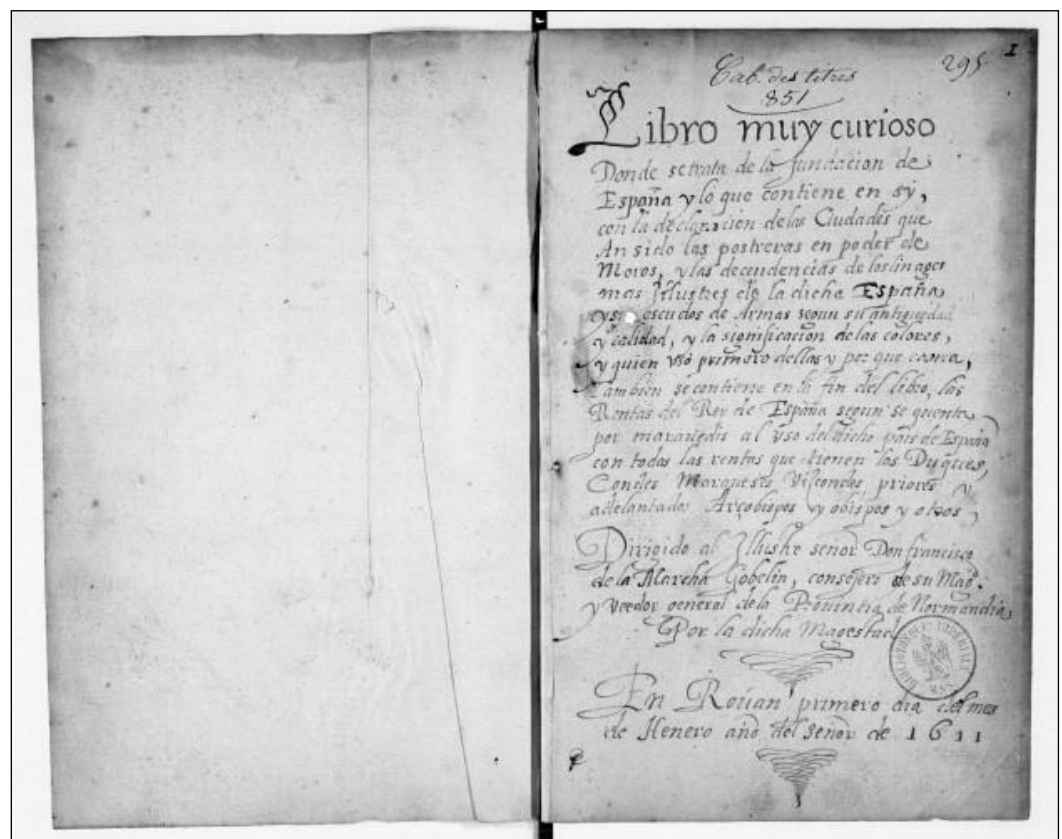 1
295
Cab. des titres
851
Libro muy curioso
Donde se trata de la fundacion de
España y lo que contiene en sy,
con la declaracion de las Ciudades que
An sido las postreras en poder de
Moros, y las decendencias de los linages
mas Illustres de la dicha España
y sus escudos de Armas segun su antiguedad
y calidad, y la significacion de las colores,
y quien usó primero dellas y por que causa,
tambien se contiene en la fin del libro, las
Rentas del Rey de España segun se quenta
por maravedis al uso del dicho pais de España
con todas las rentas que tienen los Duques,
Condes Marqueses Viscondes priores y
adelantados Arçobispos y obispos y otros
Dirigido al Illustre señor Don francisco
de la Marcha Gobelin, consejero de su Mag.
y Veedor general de la Provintia de Normandia
Por la dicha Magestad
BIBLIOTHEQUE IMPERIALE
MSS.
En Roüan primero dia del mes
de Henero año del Señor de 1611